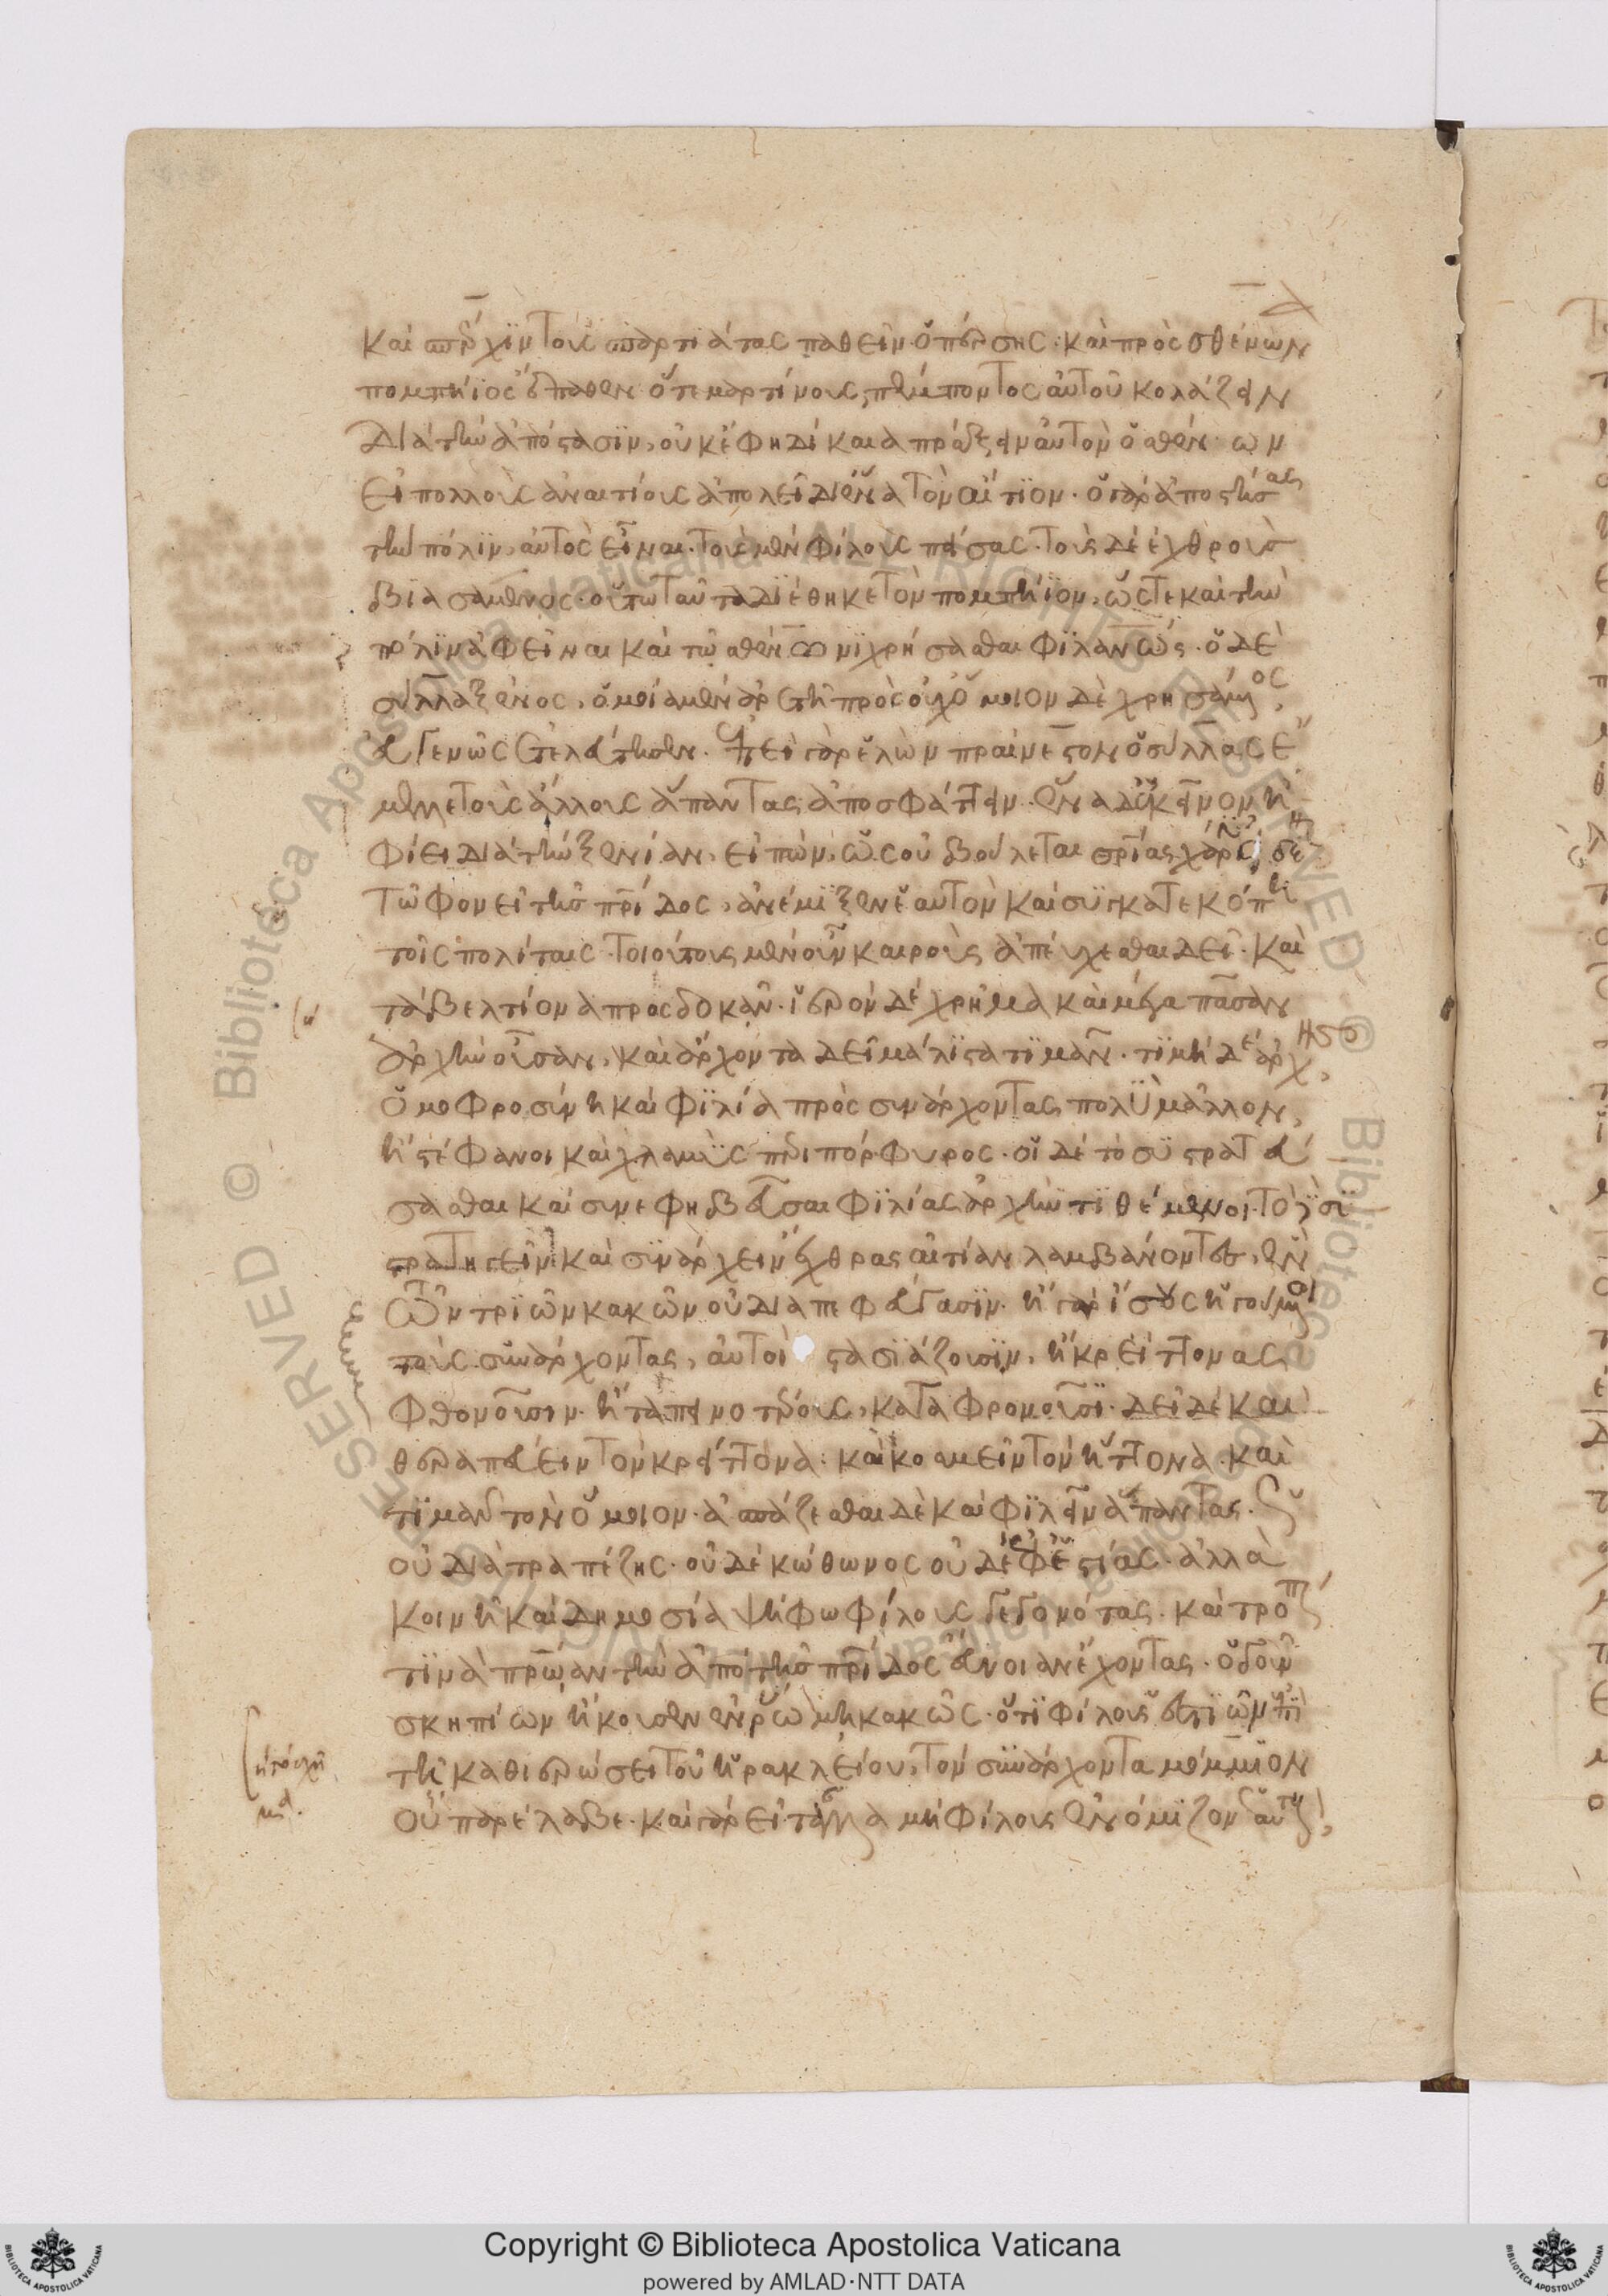 καὶ παρῆχιν τοὺς σπαρτιάτας παθεῖν ὅπερ σῆς· καὶ πρὸς σθένων
πομπήϊος ἔπαθεν ὅτε μαρτίνους πέμποντος αὐτοῦ κολάζειν
διὰ τὴν ἀπόστασϊν, οὐκ ἔφη δίκαια πράξειν αὐτὸν ὁ σθένων
εἰ πολλοὺς ἀναιτίους ἀπολεῖ δι' ἕνα τὸν αἴτϊον· ὁ γὰρ ἀποστήσας
τὴν πόλϊν, αὐτὸς εἶναι· τοὺς μὲν φίλους πείσας· τοὺς δὲ ἐχθροὺς
βϊασάμενος· οὕτω ταῦτα δϊέθηκε τὸν πομπήϊον, ὥστε καὶ τὴν
πόλϊν ἀφεῖναι καὶ τῷ σθένωνϊ χρήσασθαι φϊλανως· ὁ δὲ
σύλλα ξένος, ὁμοίᾳ μὲν ἀρετῇ πρὸς οὐχ ὅμοιον δὲ χρησάμος,
εὐγενῶς ἐτελεύτησεν· ἐπεὶ γὰρ ἑλὼν πραίνεστον ὁ σύλλας ἔ
μελλε τοὺς ἄλλους ἅπαντας ἀποσφάττειν· ἕνα δ' ἐκεῖνον ἠ
φίει διὰ τὴν ξενίαν, εἰπὼν, ὡς οὐ βούλεται σρίας χάριν εἰδέ
τῷ φονεῖ τῆς πρίδος, ἀνέμϊξεν ἑαυτὸν καὶ συγκατεκόπη
τοῖς πολίταις· τοιούτους μὲν οὖν καιροὺς ἀπεύχεσθαι δεῖ· καὶ
τὰ βελτίονα προσδοκᾶν· ἱερὸν δὲ χρῆμα καὶ μέγα πᾶσαν
ἀρχὴν οὖσαν, καὶ ἄρχοντα δεῖ μάλϊστα τϊμᾶν· τϊμὴ δὲ ἀρχῆς
ὁμοφροσύνη καὶ φϊλία πρὸς συνάρχοντας πολὺ μᾶλλον,
ἢ στέφανοι καὶ χλαμὺς περιπόρφυρος· οἱ δὲ τὸ συστρατεύ
σασθαι καὶ συνεφηβεῦσαι φϊλίας ἀρχὴν τϊθέμενοι· τὸ συ
στρατηγεῖν καὶ συνάρχειν ἔχθρας αἰτίαν λαμβάνοντες, ἓν
τῶν τρϊῶν κακῶν οὐ διαπεφεύγασϊν· ἢ γὰρ ἴσους ἡγούμοι
τοὺς συνάρχοντας, αὐτοὶ στασϊάζουσϊν, ἢ κρείττονας
φθονοῦσιν· ἢ ταπεινοτέρους, καταφρονοῦσϊ· δεῖ δὲ καὶ
θεραπεύειν τὸν κρείττονα· καὶ κοσμεῖν τὸν ἥττονα· καὶ
τϊμᾶν τὸν ὅμοιον· ἀσπάζεσθαι δὲ καὶ φϊλεῖν ἅπαντας·
οὐ διὰ τραπέζης· οὐδὲ κώθωνος οὐδὲ ἐφ' ἑστίας· ἀλλὰ
κοινῇ καὶ δημοσίᾳ ψήφῳ φίλους γεγονότας· καὶ τρόπ
τϊνὰ πρῴαν τὴν ἀπὸ τῆς πρίδος εὔνοιαν ἔχοντας· ὁ γοῦν
σκηπίων ἤκουσεν ἐν ῥώμῃ κακῶς· ὅτϊ φίλους ἑστϊῶν ἐπὶ
τῇ καθιερώσει τοῦ ἡρακλείου, τὸν συνάρχοντα μόμμϊον
οὐ παρέλαβε· καὶ γὰρ εἰ τἄλλα μὴ φίλους ἐνόμϊζον ἑαυτ